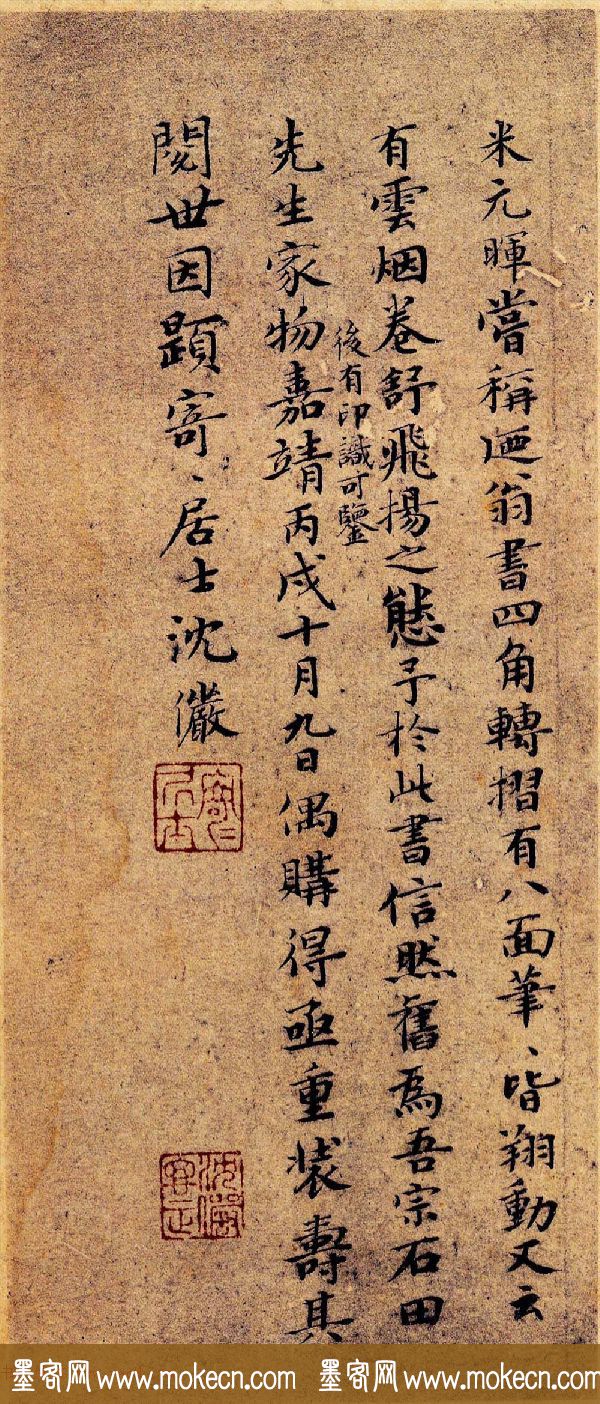 米元暉嘗稱迺翁書四角轉摺有八面筆、皆翔動又云
有雲烟卷舒飛揚之態予於此書信然舊為吾宗石田
後有印識可鑒
先生家物嘉靖丙戌十月九日偶購得亟重裝壽其
閱世因題寄、居士沈瀫
墨客网 www.mokecn.com 墨客网 www.mokecn.com